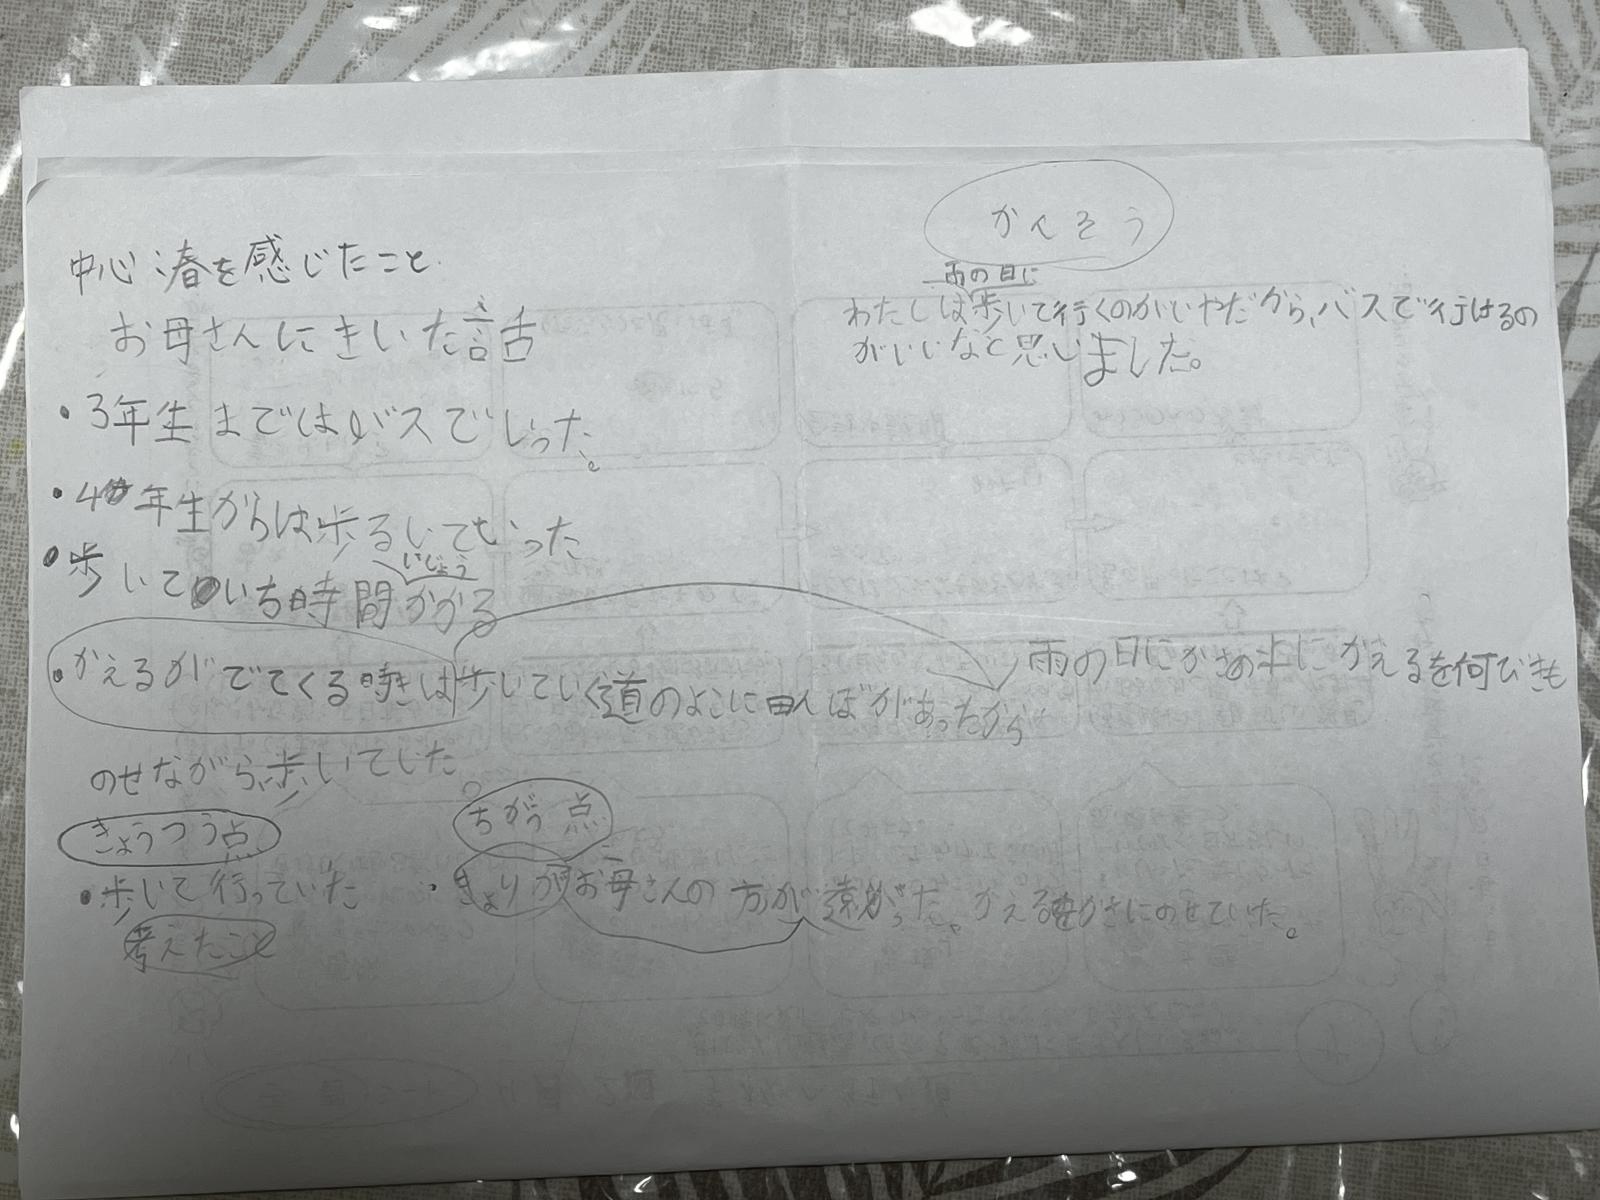 中心:春を感じたこと
お母さんにきいた話
・3年生まではバスでいった。
・4年生からは歩るいていった
・歩いていち時間かかる
いじょう
・かえるがでてくる時きは歩いていく道のよこに田んぼがあったから
雨の日にかさの上にかえるを何びきも
のせながら、歩いてした。
きょうつう点
・歩いて行っていた
考えたこと
ちがう点
・きょりがお母さんの方が遠かった。かえるをかさにのせていた。
かんそう
雨の日に
わたしは歩いて行くのがいやだから、バスで行けるの
がいいなと思いました。